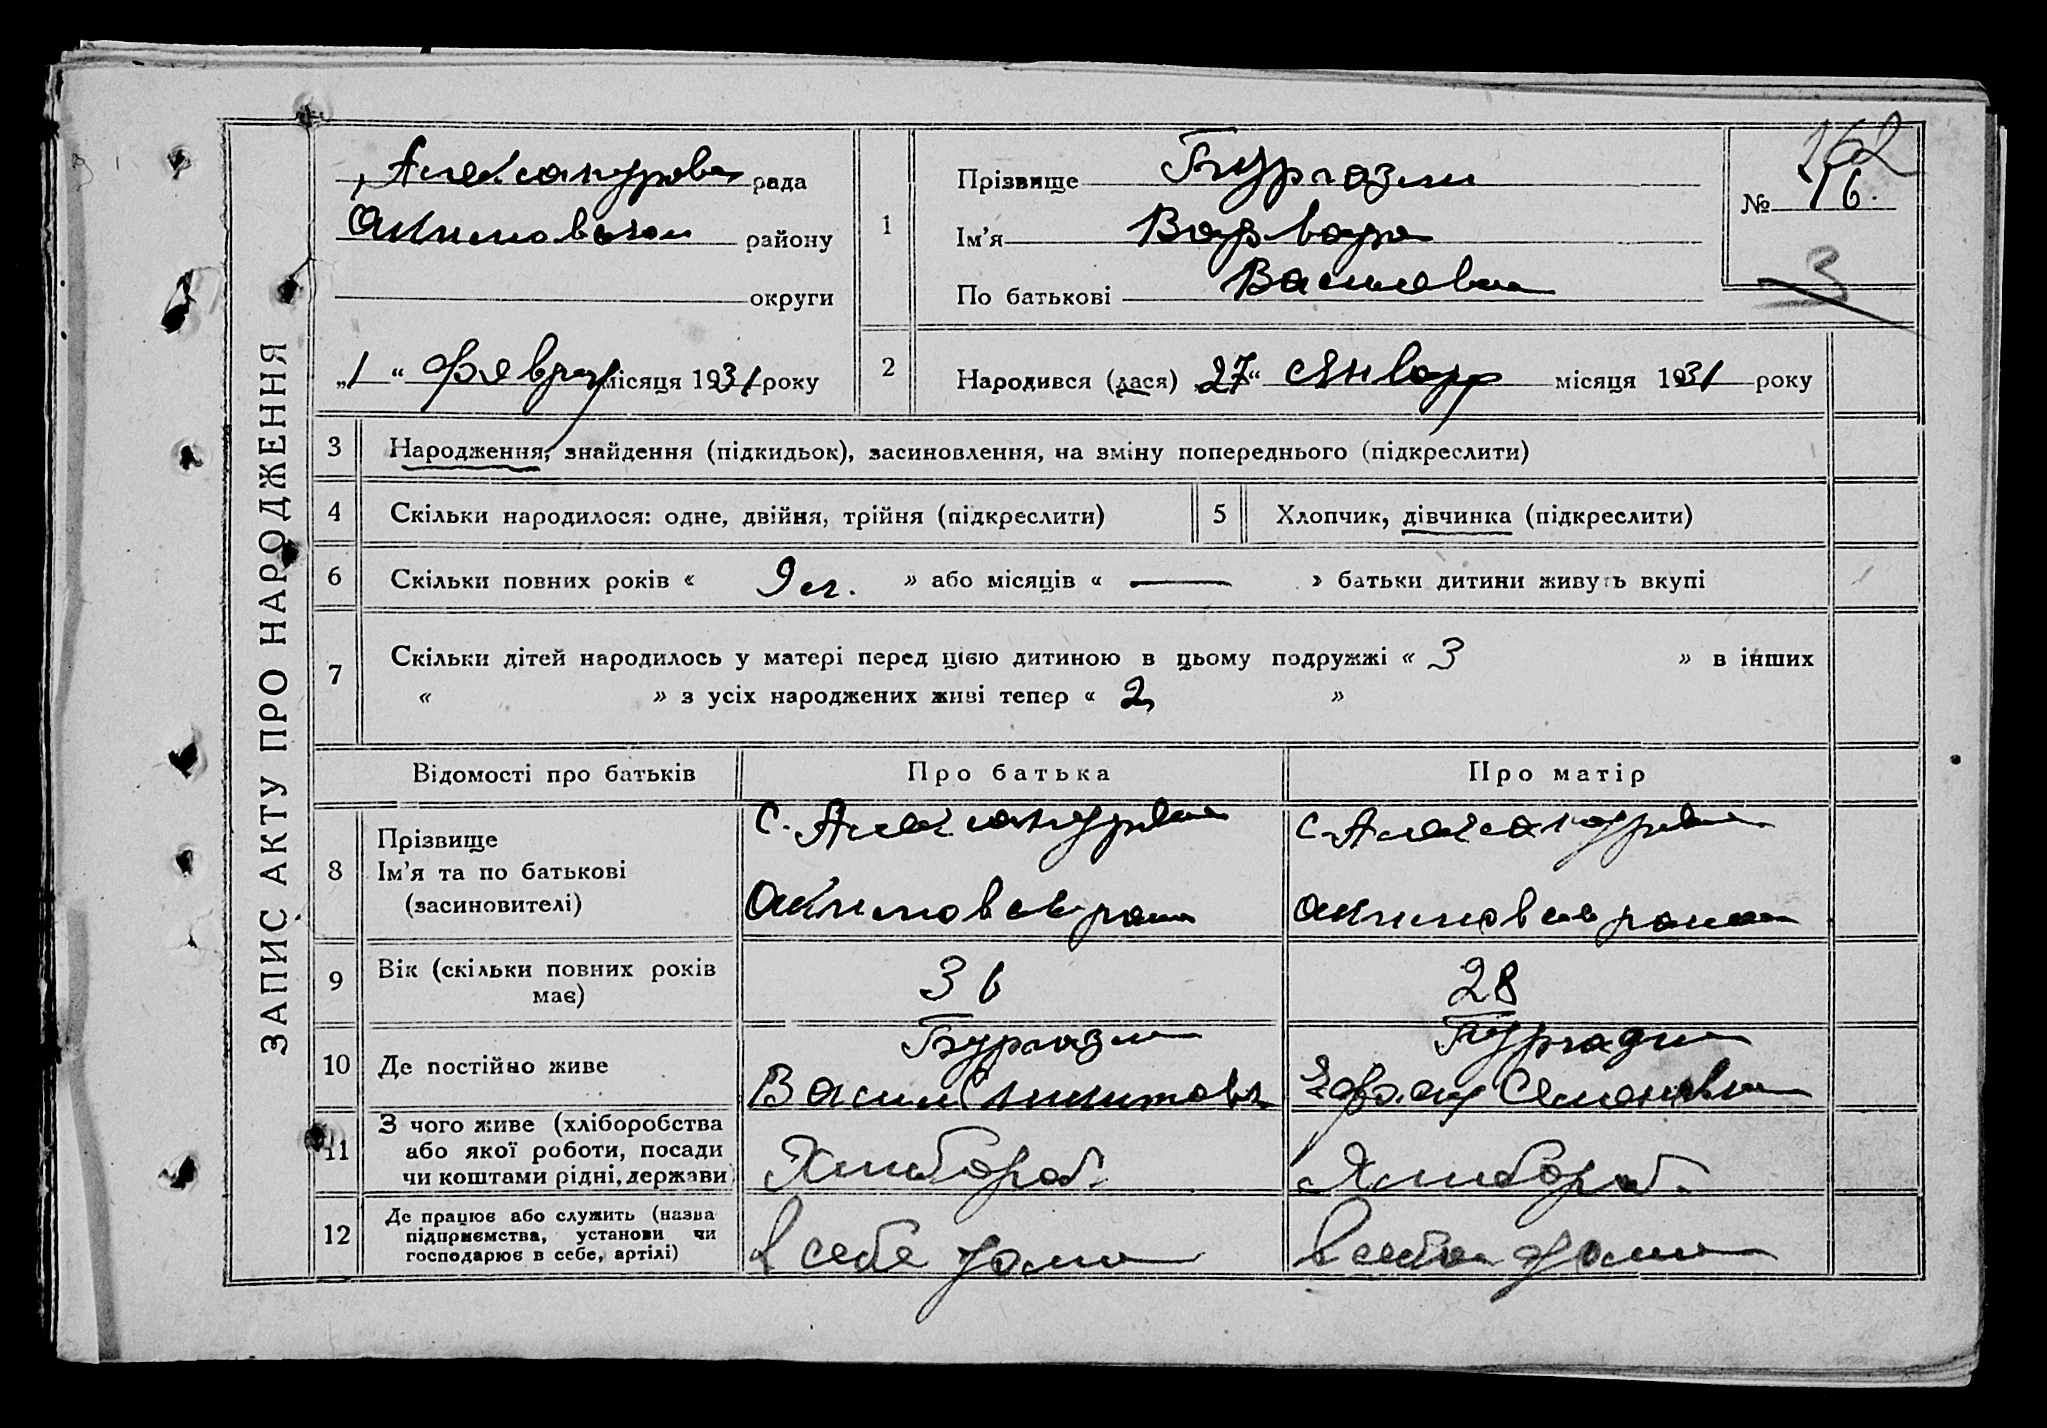 ЗАПИС АКТУ ПРО НАРОДЖЕННЯ
Александровка рада
Акимовском району
округи
„1“ феврал місяця 1931 року
1
Прізвище Бургазли
Ім'я Варвара
По батькові Василевна
162
№ 16.
3
2
Народився (лася) 27“ января місяця 1931 року
3 Народження, знайдення (підкидьок), засиновлення, на зміну попереднього (підкреслити)
4 Скільки народилося: одне, двійня, трійня (підкреслити)
5 Хлопчик, дівчинка (підкреслити)
6 Скільки повних років « 9 л. » або місяців « — » батьки дитини живуть вкупі
7 Скільки дітей народилось у матері перед цією дитиною в цьому подружжі « 3 » в інших
« » з усіх народжених живі тепер « 2 »
Відомості про батьків
Про батька
Про матір
8 Прізвище
Ім'я та по батькові
(засиновителі)
с. Александровка
Акимовск района
с. Александровка
Акимовск района
9 Вік (скільки повних років
має)
36
28
10 Де постійно живе
Бургазли
Васил Никитович
Бургазли
Семеновна
11 З чого живе (хліборобства
або якої роботи, посади
чи коштами рідні, держави)
Хлибороб.
Хлибороб.
12 Де працює або служить (назва
підприємства, установи чи
господарює в себе, артілі)
в себе дома
в себе дома